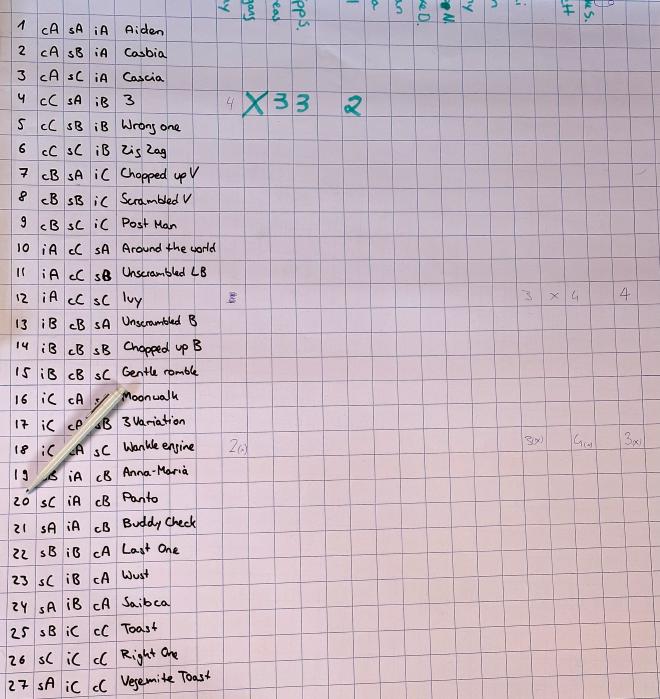 1 cA sA iA Aiden
2 cA sB iA Casbia
3 cA sC iA Cascia
4 cC sA iB 3 4 X 3 3 2
5 cC sB iB Wrong one
6 cC sC iB Zig Zag
7 cB sA iC Chopped up V
8 cB sB iC Scrambled V
9 cB sC iC Post Man
10 iA cC sA Around the world
11 iA cC sB Unscrambled LB
12 iA cC sC Ivy 3 x 4 4
13 iB cB sA Unscrambled B
14 iB cB sB Chopped up B
15 iB cB sC Gentle ramble
16 iC cA Moonwalk
17 iC cA sB 3 Variation
18 iC cA sC Wankle engine 2(x) 3(x) 4(x) 3(x)
19 sB iA cB Anna-Maria
20 sC iA cB Panto
21 sA iA cB Buddy Check
22 sB iB cA Last One
23 sC iB cA Wust
24 sA iB cA Saibca
25 sB iC cC Toast
26 sC iC cC Right One
27 sA iC cC Vegemite Toast